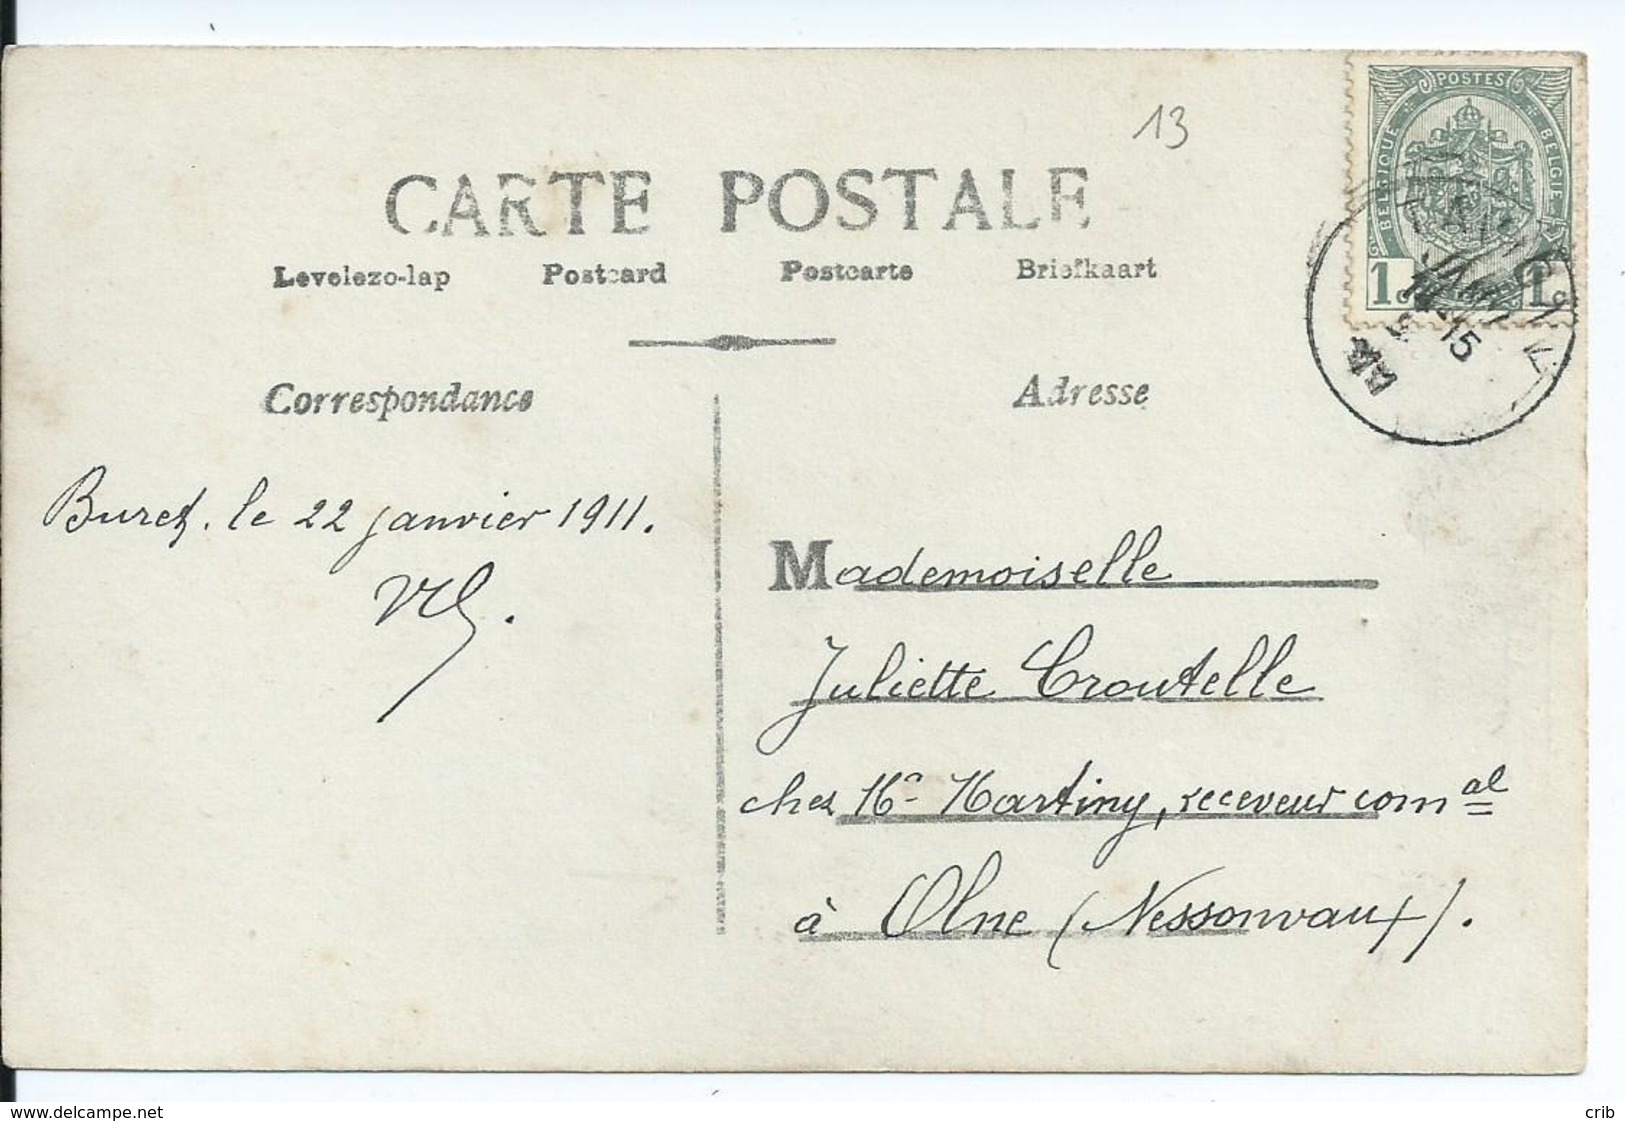 13
POSTES
BELGIQUE
BELGIE
1c
1c
TAVIGNY
JANV
15
CARTE POSTALE
Levelezo-lap Postcard Postcarte Briefkaart
Correspondance
Adresse
Buret. le 22 janvier 1911.
Mademoiselle
Juliette Croutelle
chez Mr Martiny, receveur comal
à Olne (Nessonvaux).
www.delcampe.net
crib